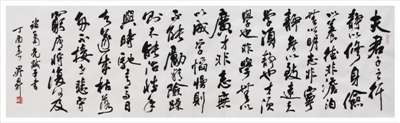 夫君子之行
静以修身儉
以養德非澹泊
無以明志非寧
静無以致遠
夫學須静也才須
學也非學無以
廣才非志無
以成學慆慢則
不能勵精險躁
則不能治性年
與時馳意與日
去遂成枯落
多不接世悲守
窮廬將復何及
諸葛亮誡子書
丁酉春